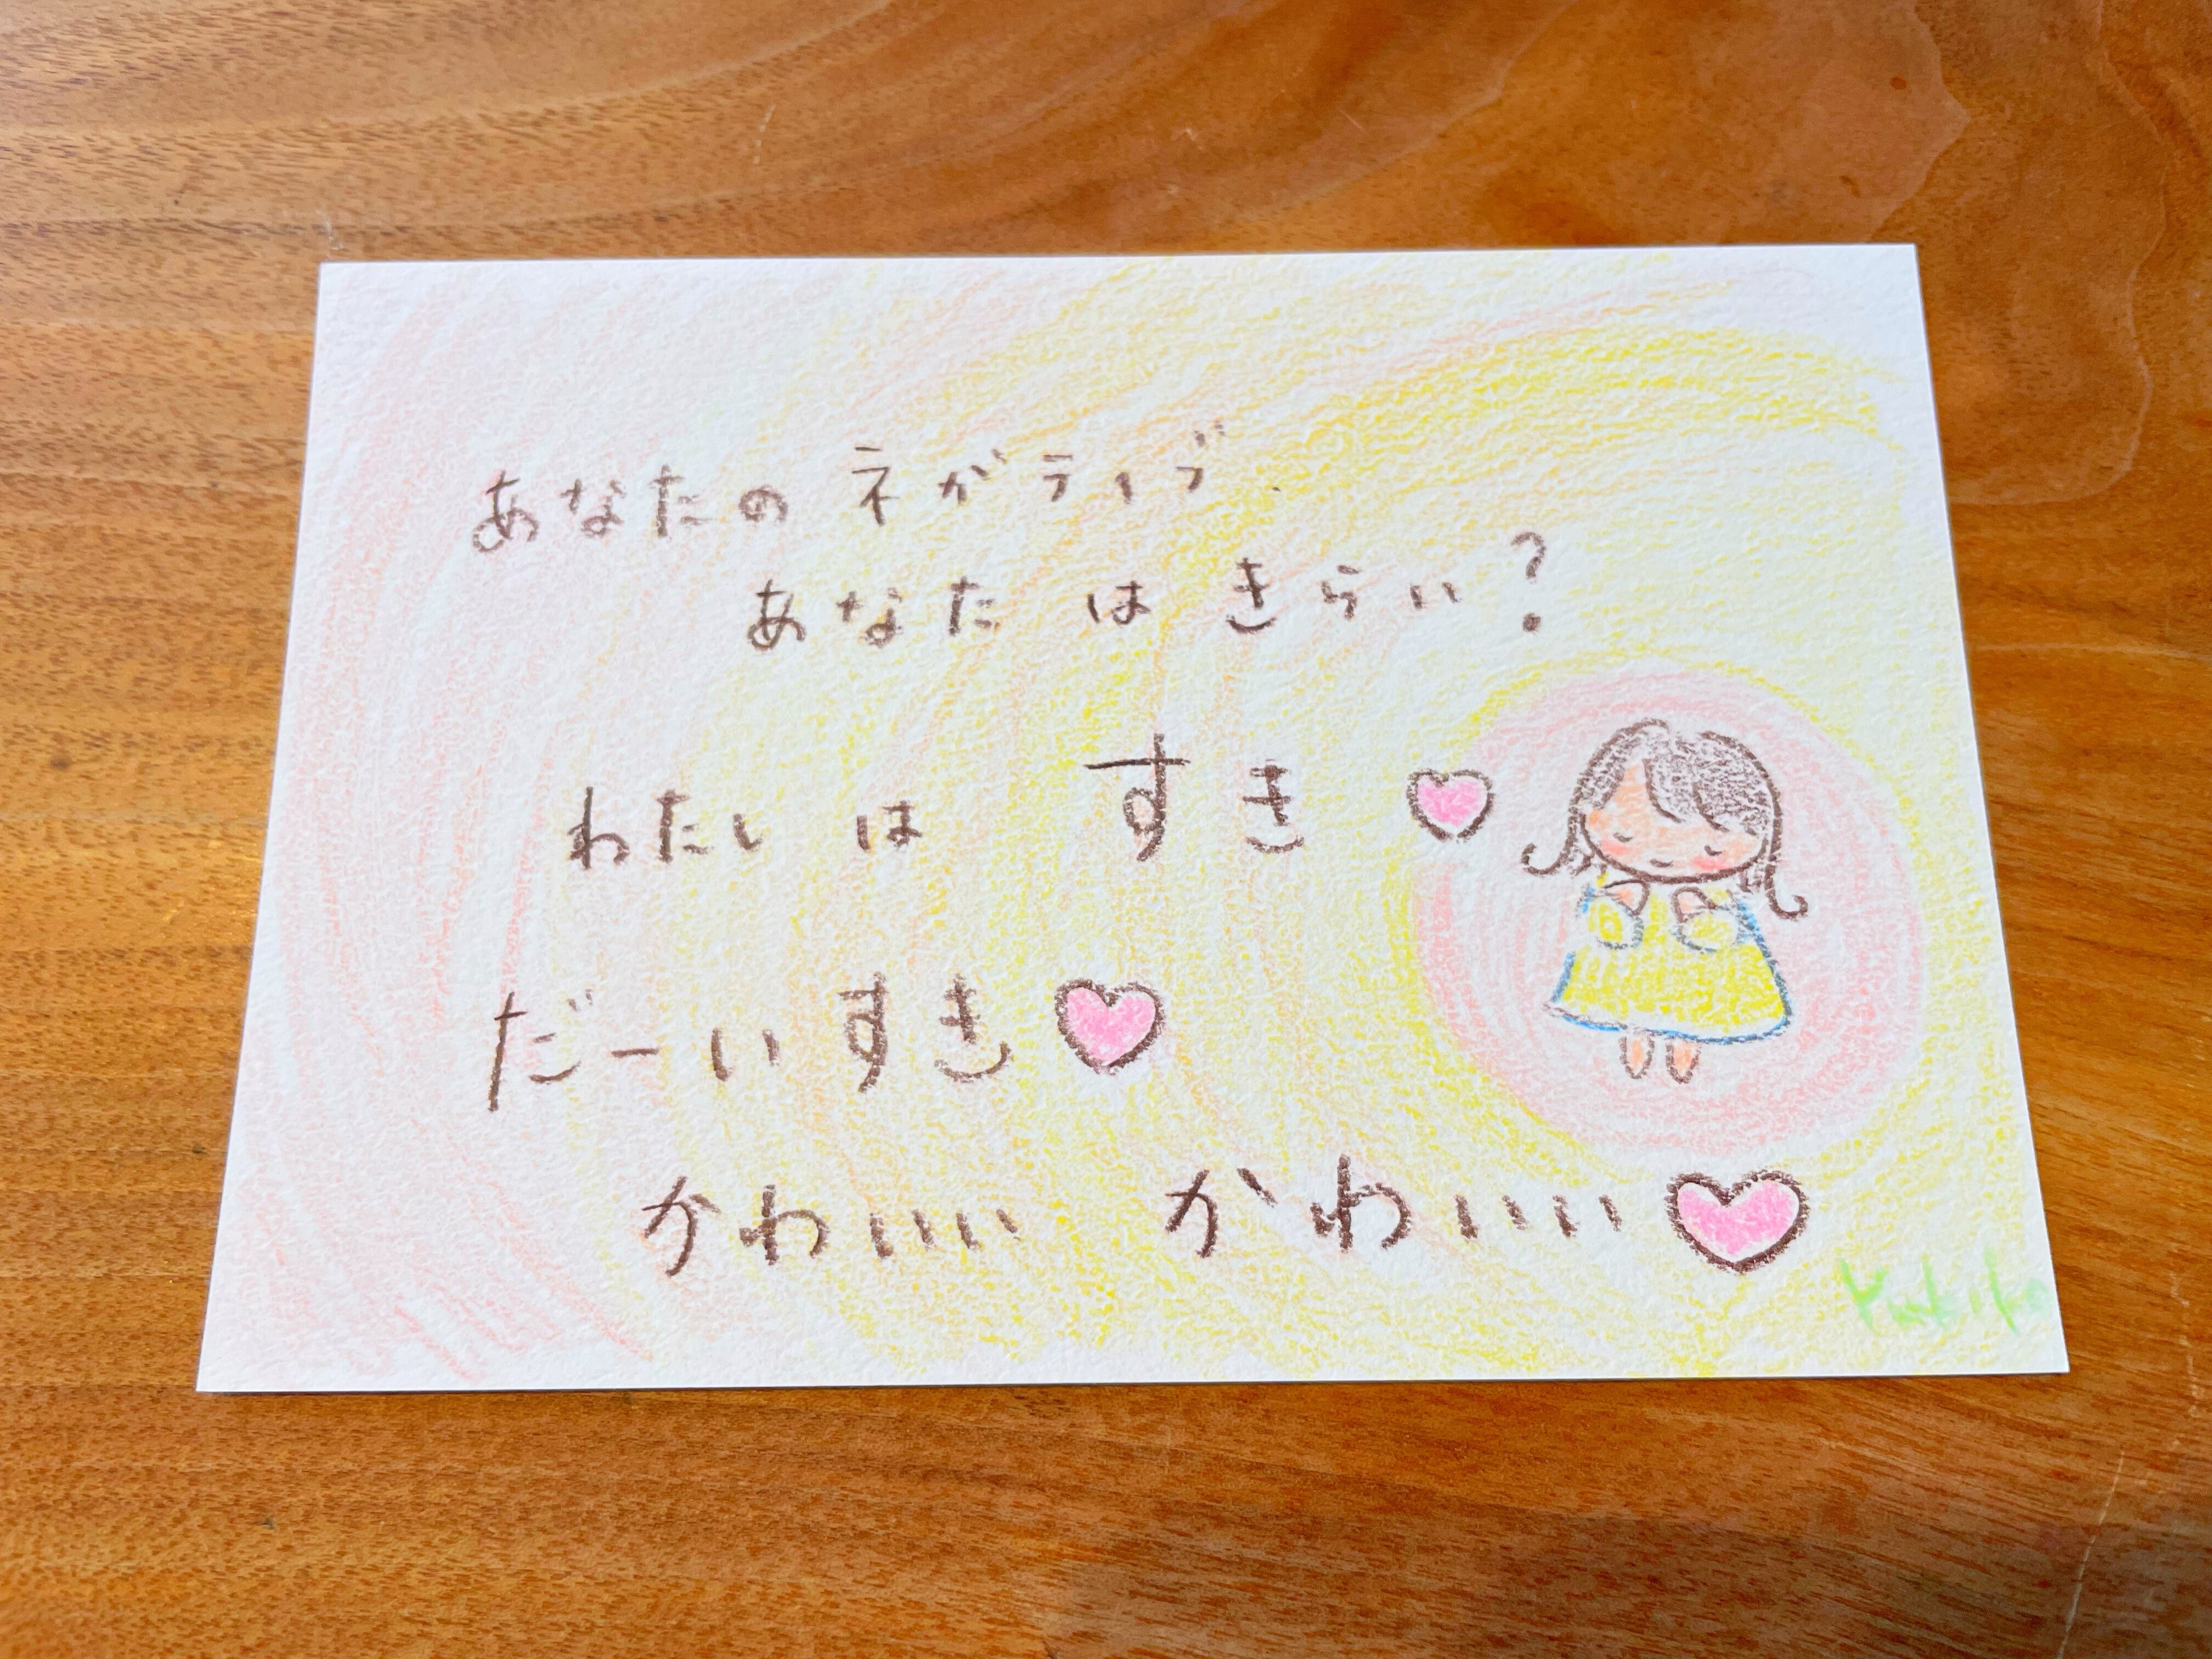 あなたの ネガティブ、
あなた は きらい?
わたし は すき♡
だーいすき♡
かわいい かわいい♡
Yukiko